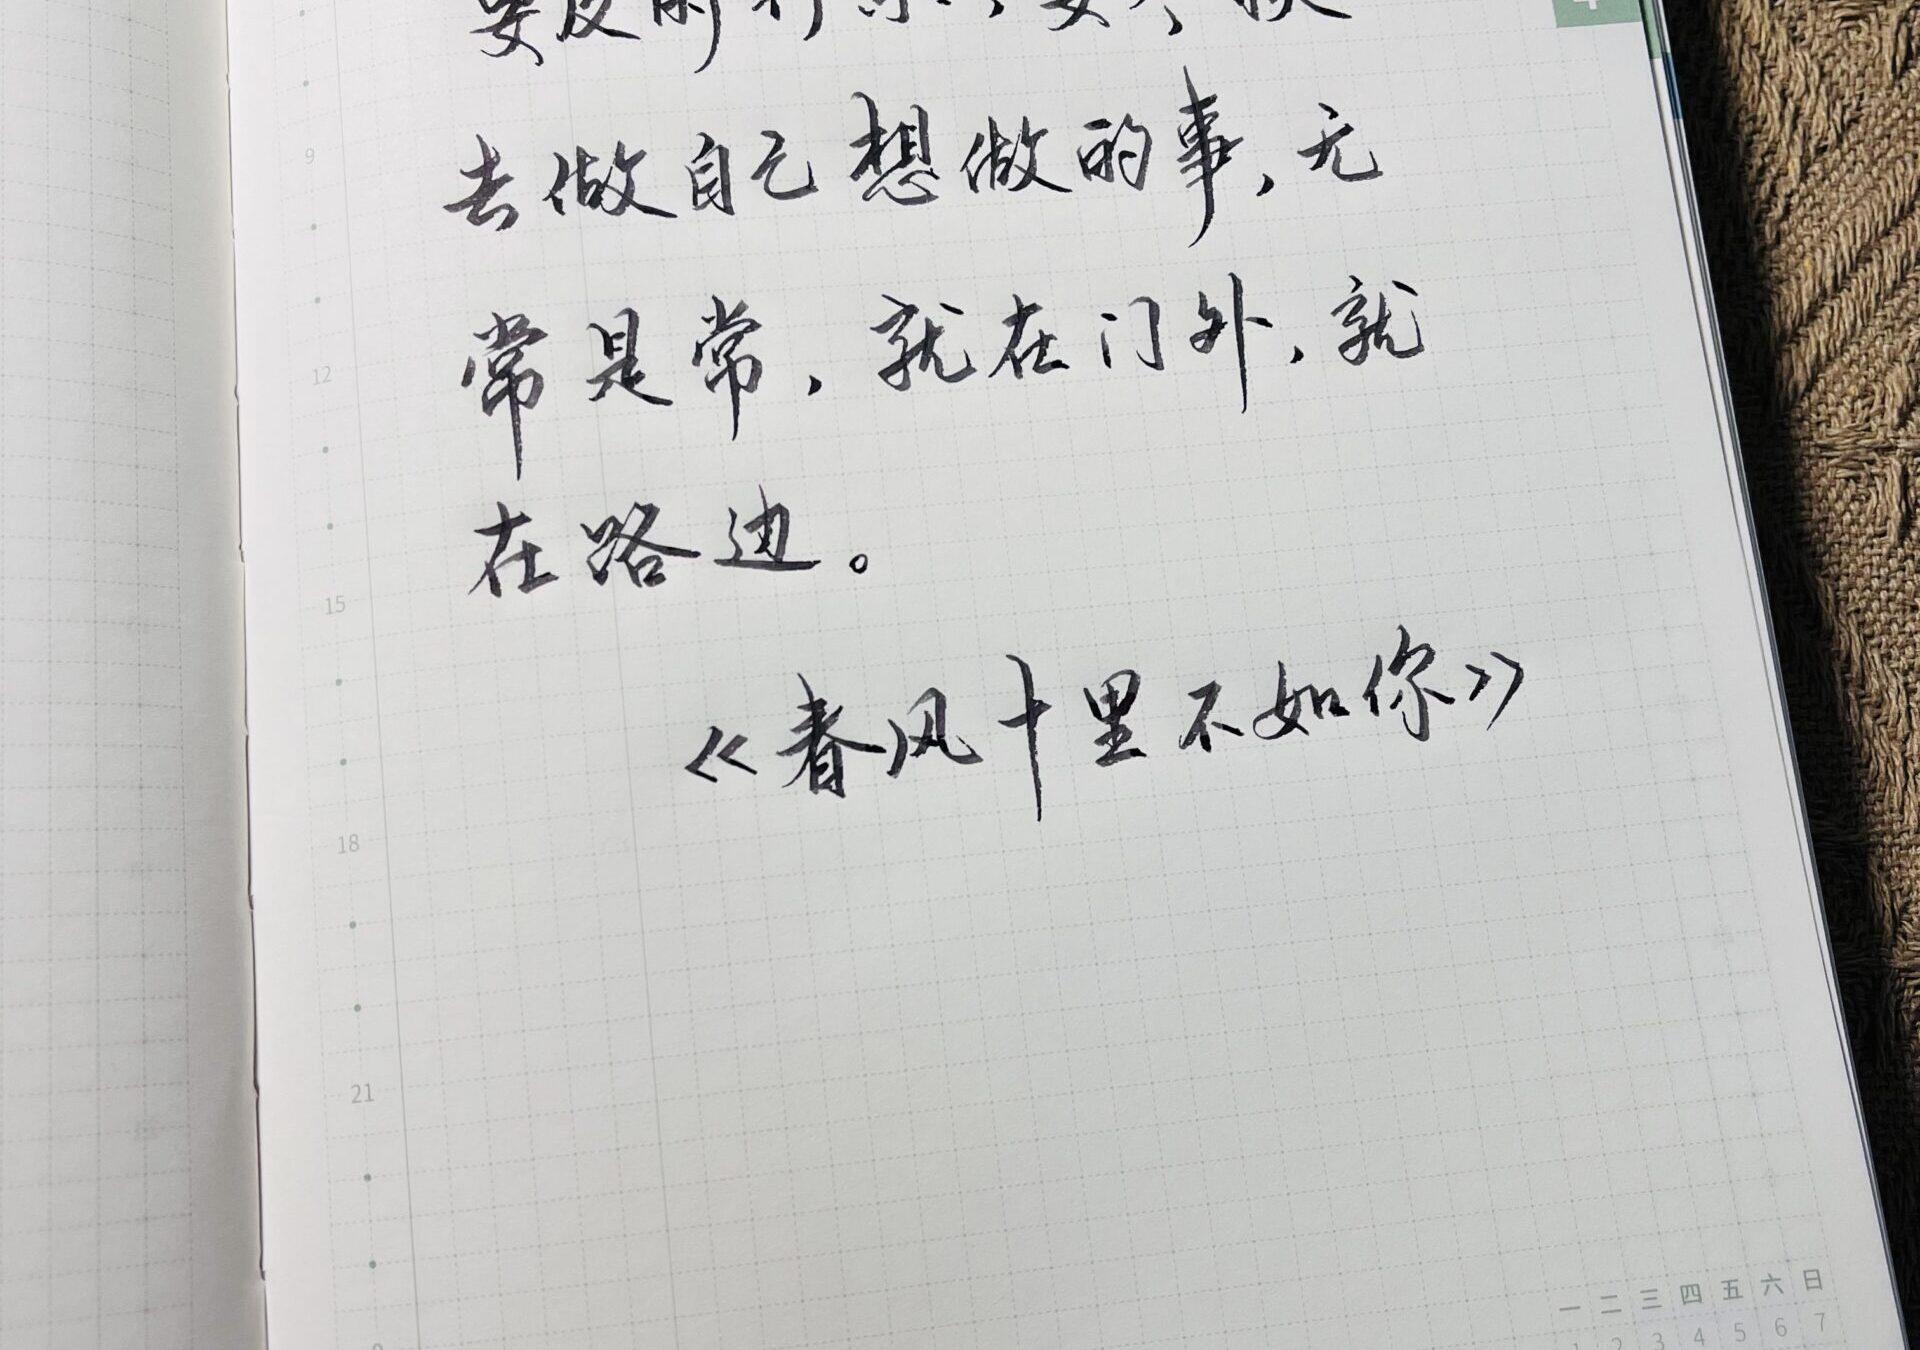 去做自己想做的事，无
常是常，就在门外，就
在路边。
《春风十里不如你》
9
12
15
18
21
一 二 三 四 五 六 日
1 2 3 4 5 6 7